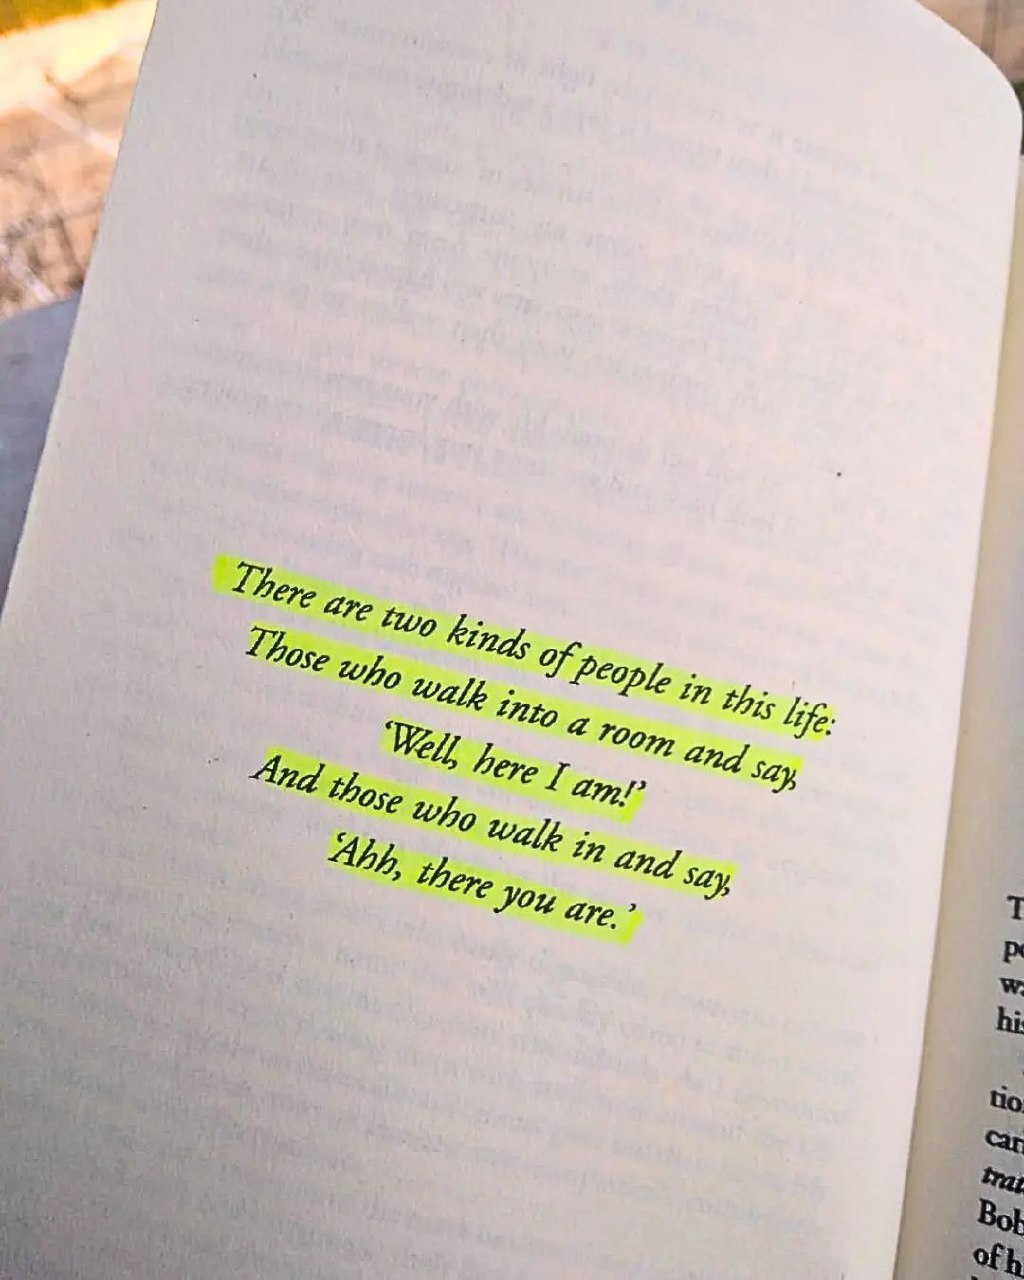 There are two kinds of people in this life:
Those who walk into a room and say,
‘Well, here I am!’
And those who walk in and say,
‘Ahh, there you are.’
Bob
of h